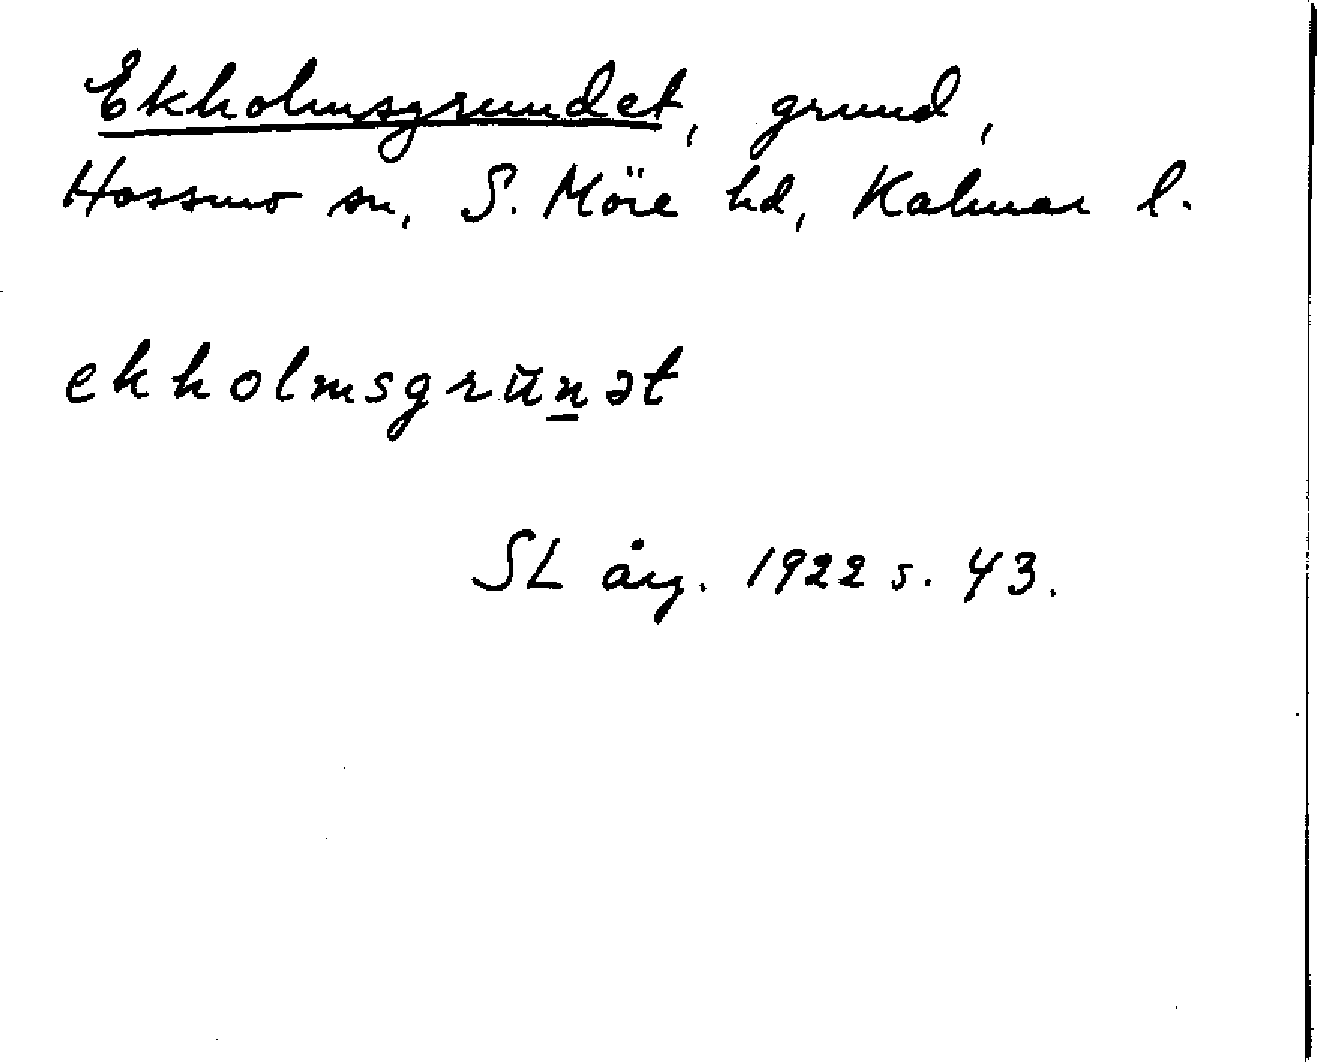 Ekholmsgrundet, grund,
Hossmo sn, S. Möre hd, Kalmar l.
ekholmsgrŭn̲ət
SL årg. 1922 s. 43.